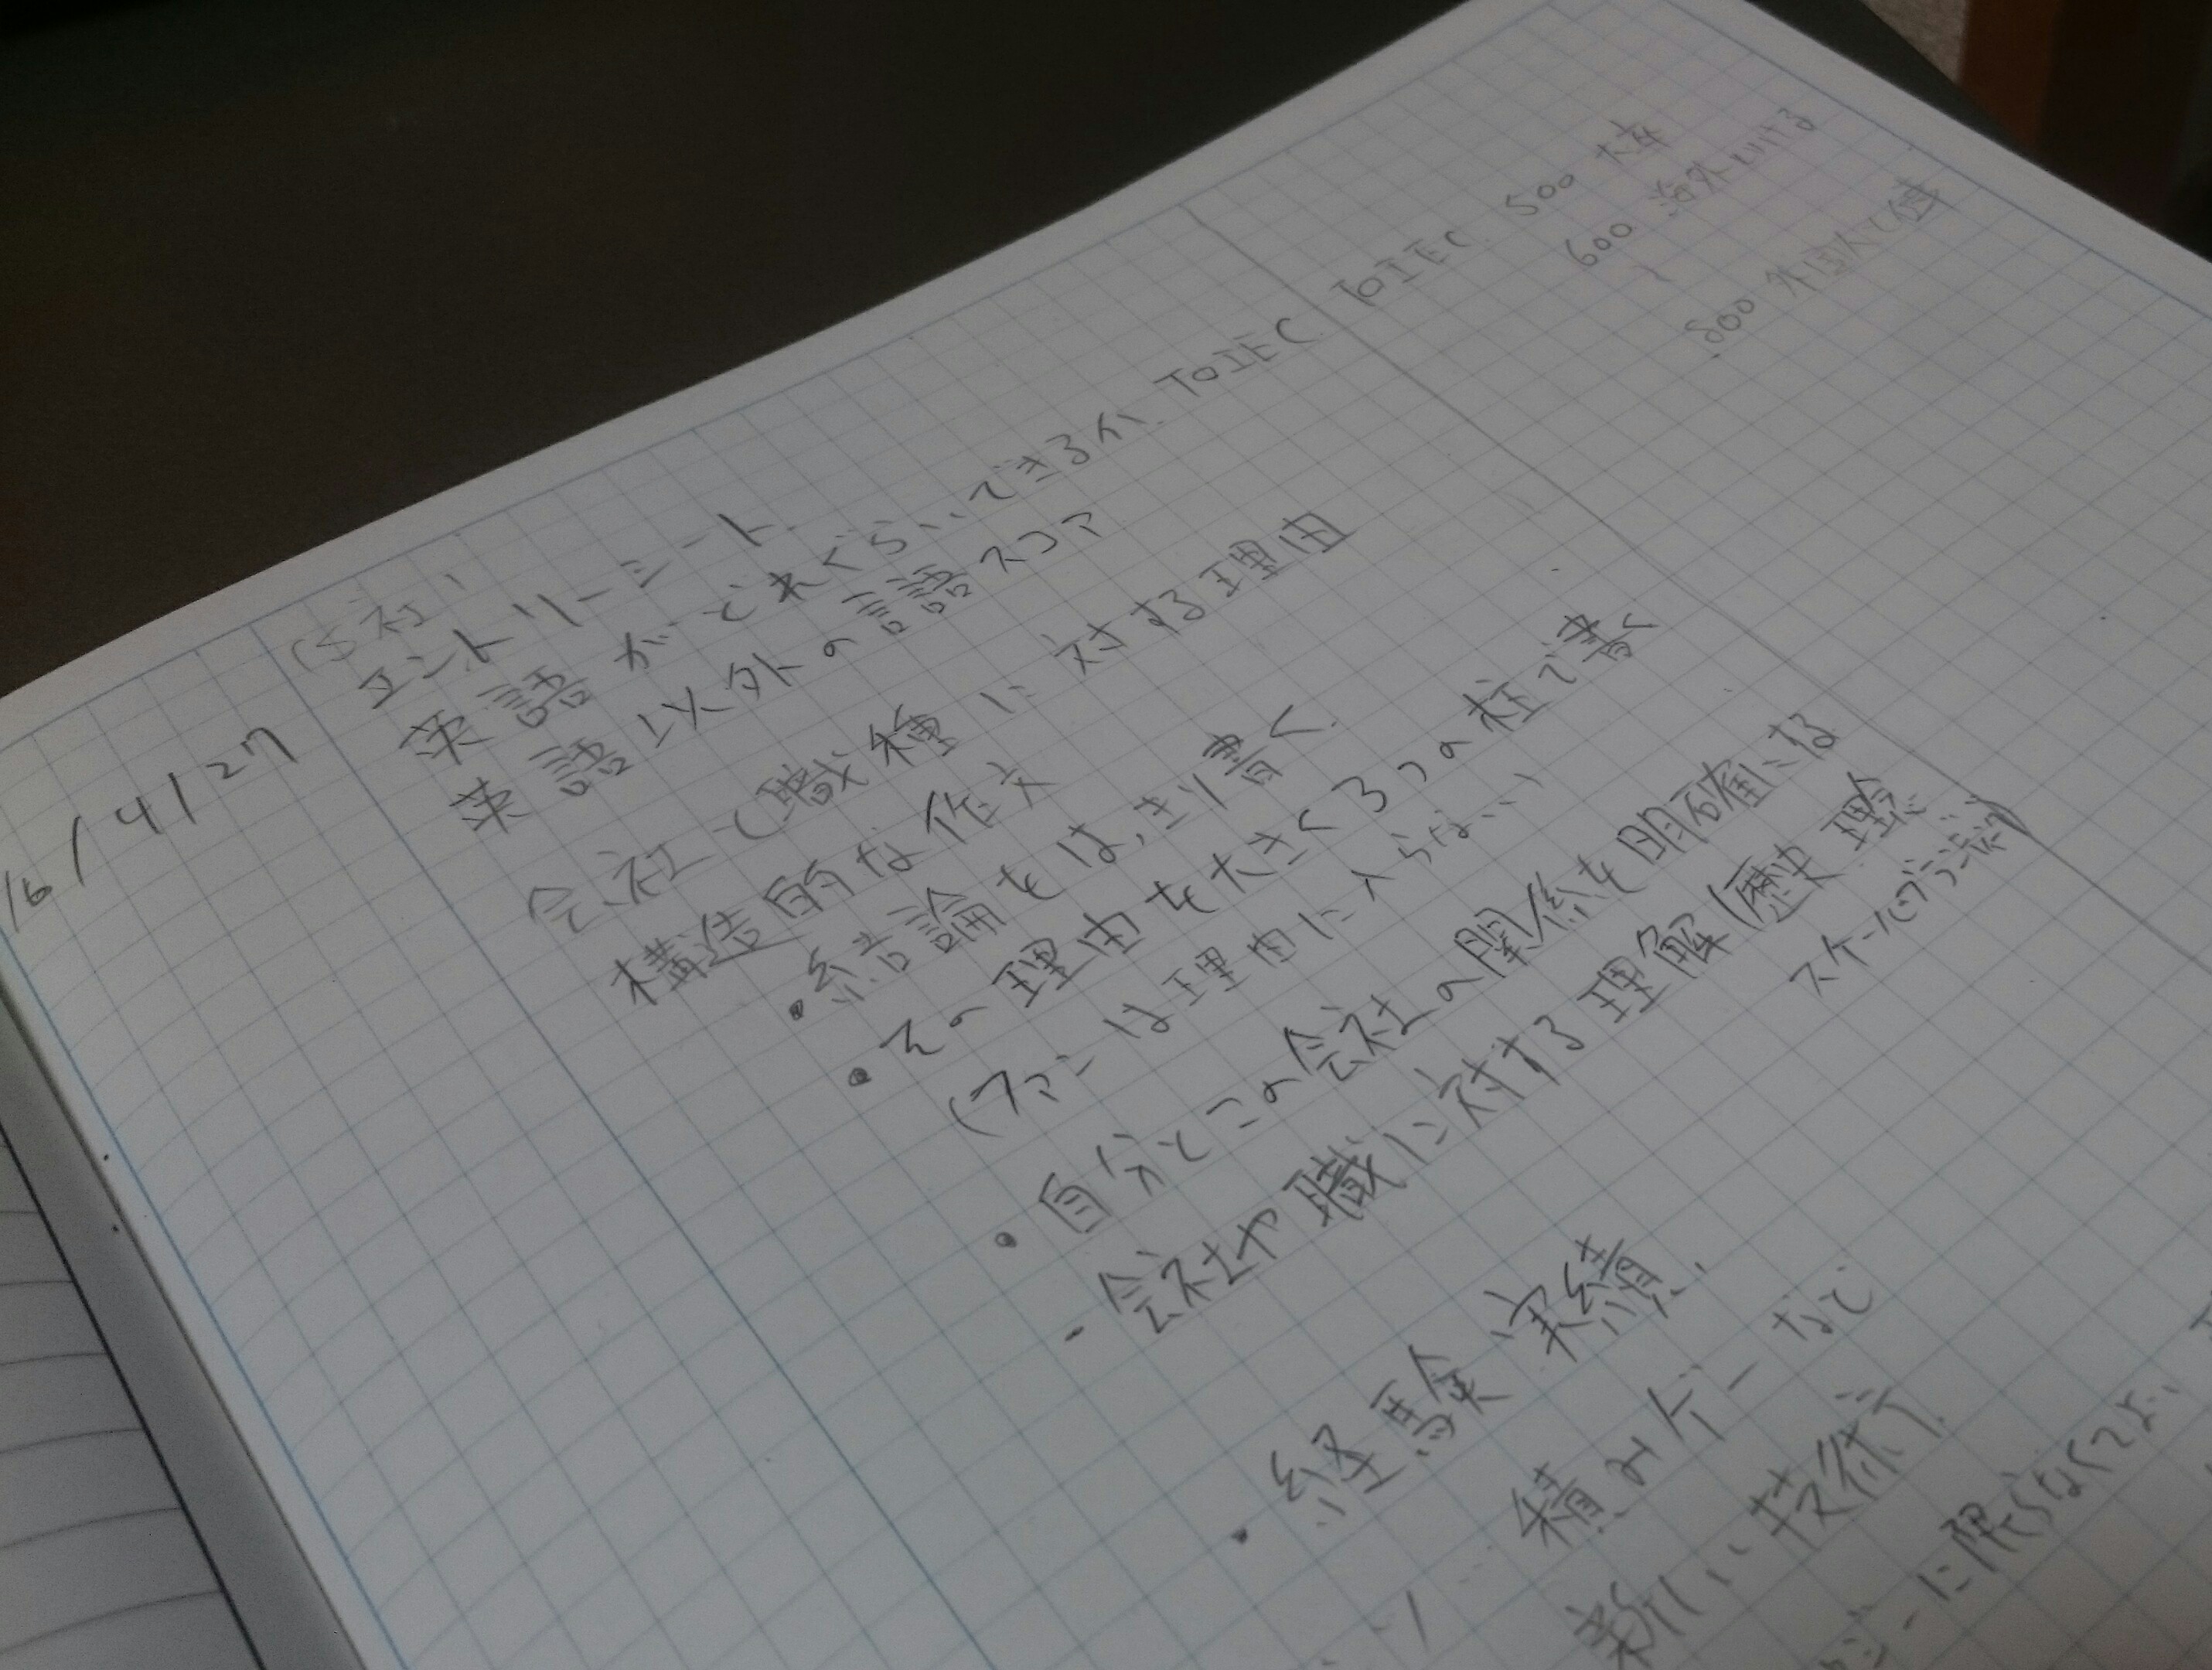 16/4/27
(5社)
エントリーシート
英語がどれぐらいできるか. TOIEC. TOIEC. 500 大卒
600 海外いける
〜
800 外国人と仕事
英語以外の言語スコア
会社と職種に対する理由
構造的な作文
・結論をはっきり書く.
・その理由を大きく3つの柱で書く
(ファンは理由に入らない)
・自分とこの会社の関係を明確にする
- 会社や職に対する理解(歴史 理念
スケールの
・経験 実績.
積みゲー など
新しい技術.
に限らなくてよい